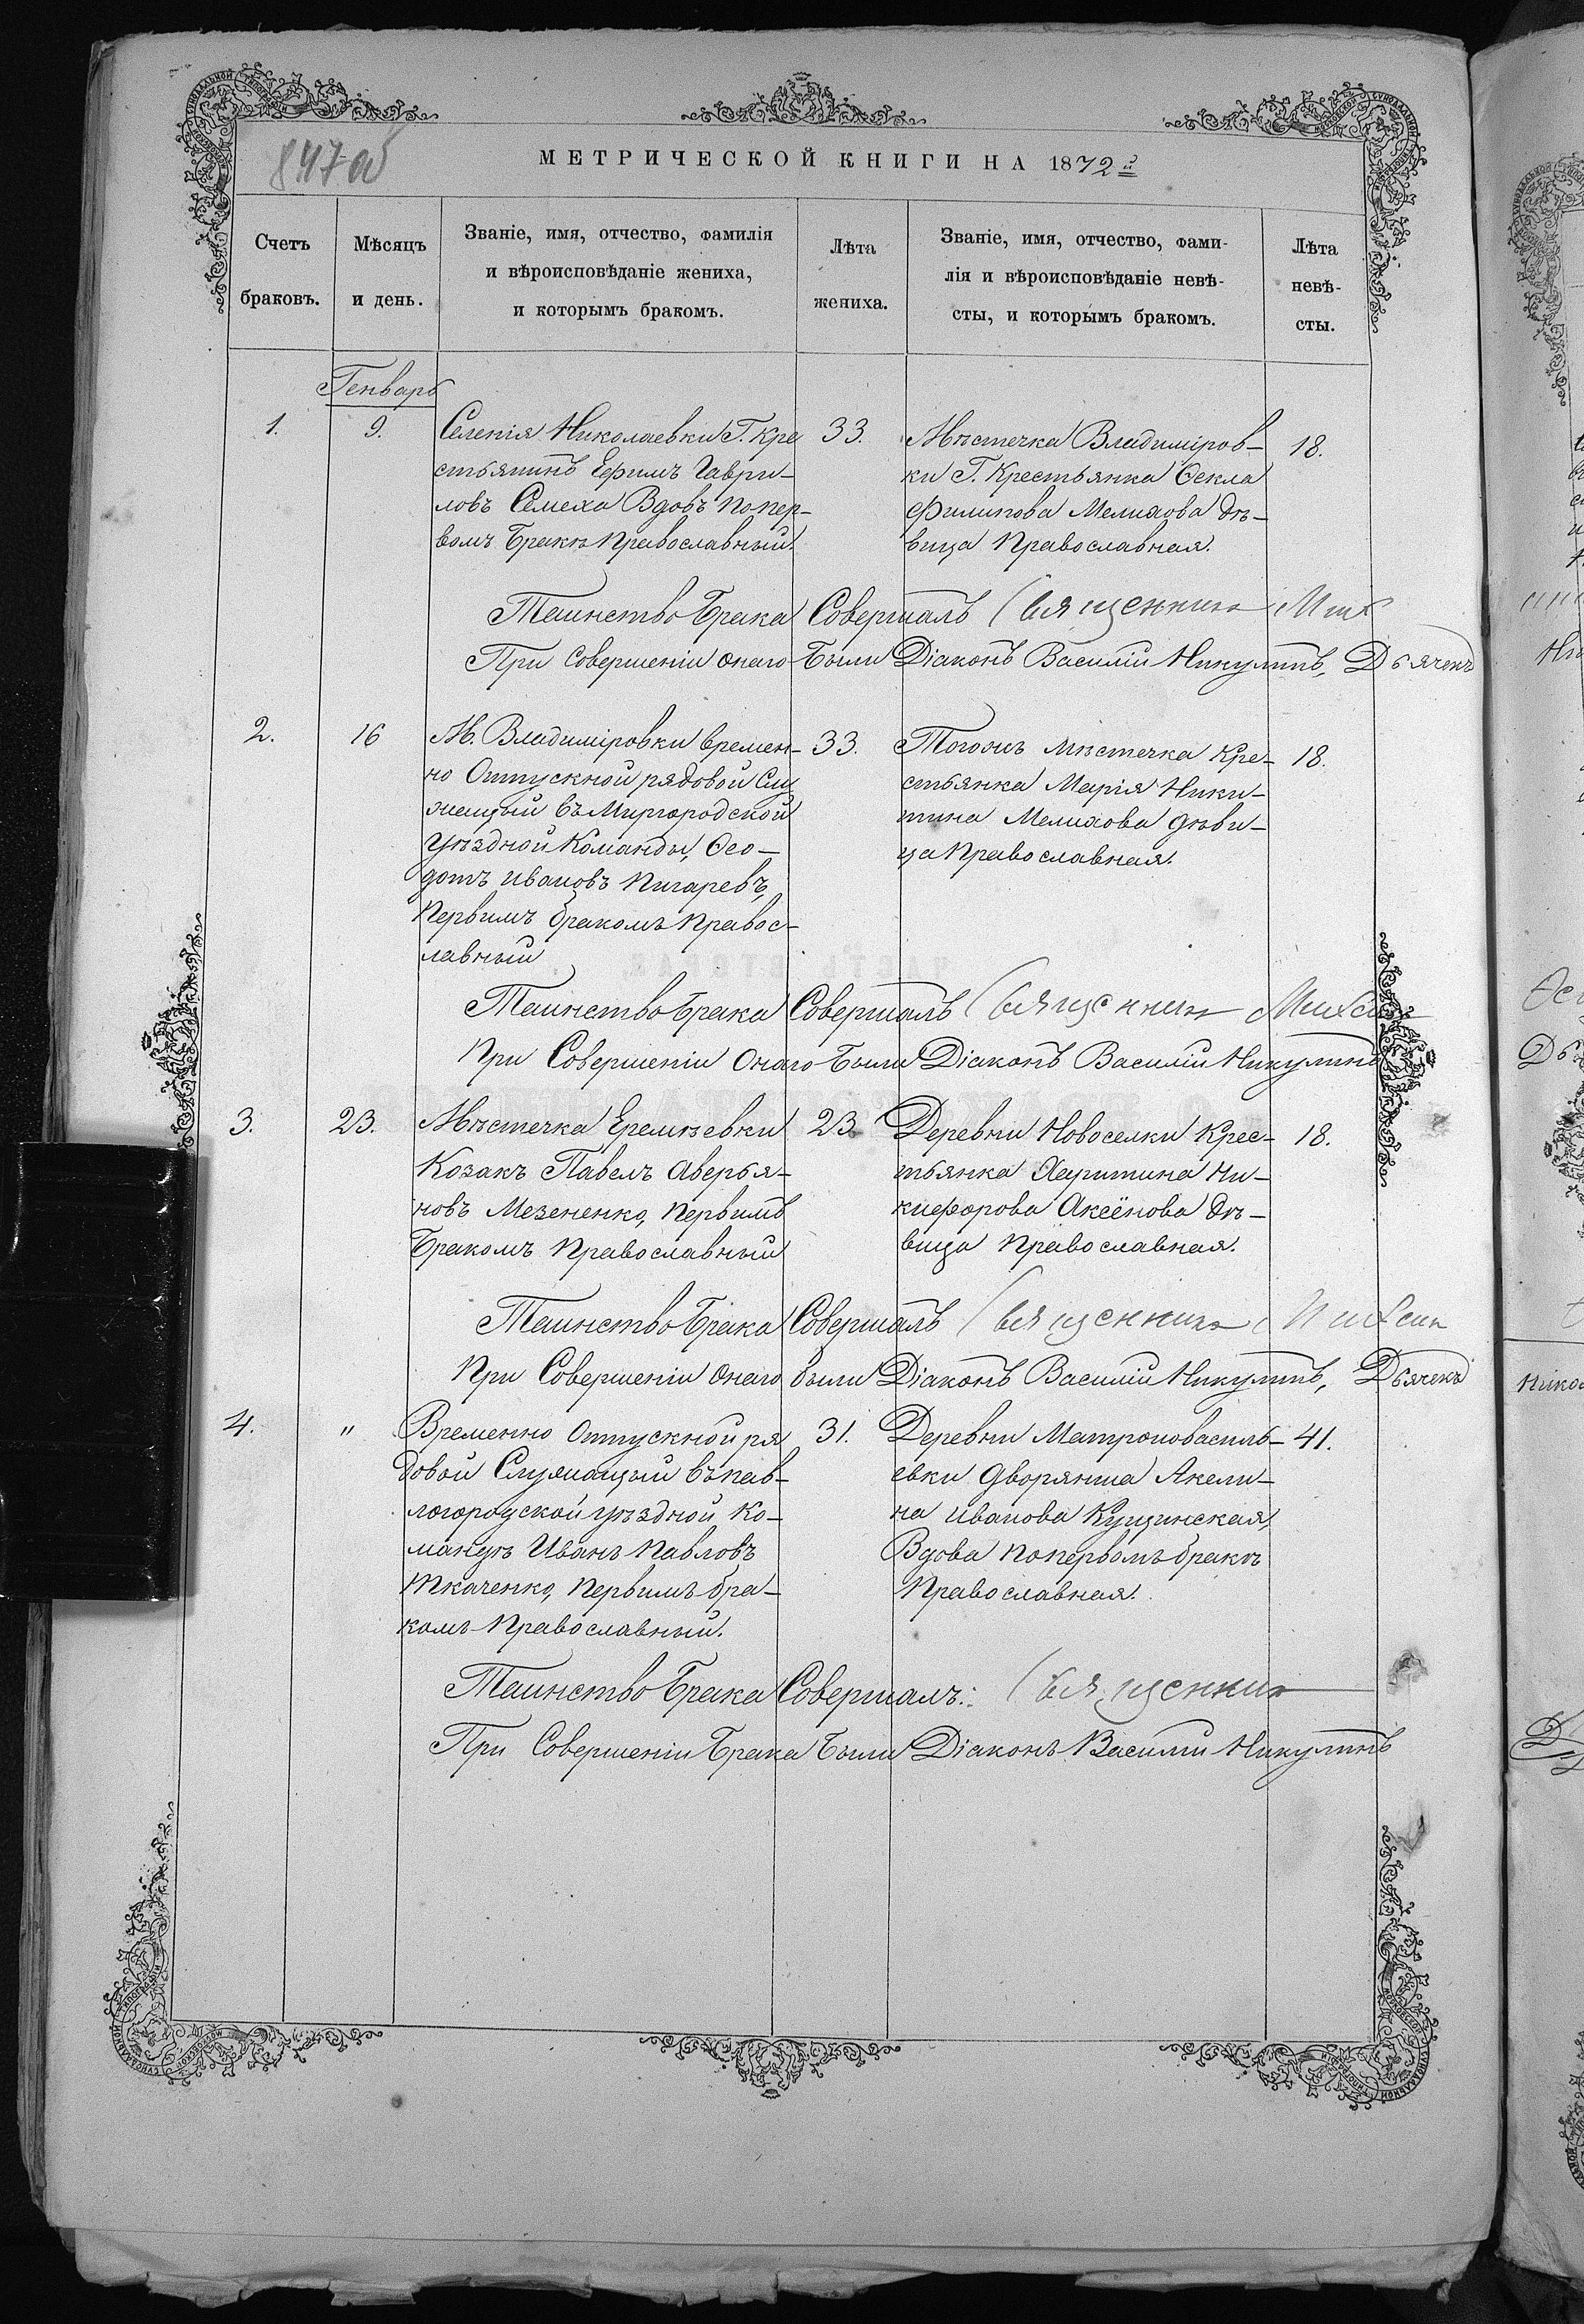 847 об
МЕТРИЧЕСКОЙ КНИГИ НА 1872й
Счетъ
браковъ.
Мѣсяцъ
и день.
Званіе, имя, отчество, фамилія
и вѣроисповѣданіе жениха,
и которымъ бракомъ.
Лѣта
жениха.
Званіе, имя, отчество, фами-
лія и вѣроисповѣданіе невѣ-
сты, и которымъ бракомъ.
Лѣта
невѣ-
сты.
Генварь
1.
9.
Селенія Николаевки Г. Кре
стьянинъ Ефимъ Гаври-
ловъ Семеха Вдовъ по пер-
вомъ Бракѣ Православный.
33.
Мѣстечка Владиміров-
ки Г. Крестьянка Ѳекла
Филипова Мелихова дѣ-
вица Православная.
18.
Таинство Брака Совершалъ Священникъ Мих
При Совершеніи онаго Были Діаконъ Василій Никулинъ, Дьячекъ
2.
16
М. Владиміровки времен-
но Отпускной рядовой Слу
жащый въ Миргородской
Уѣздной Команды, Ѳео-
дотъ Ивановъ Пигаревъ,
Первимъ бракомъ Правос-
лавный
33.
Тогожъ мѣстечка Кре-
стьянка Марія Ники-
тина Мелихова дѣви-
ца Православная.
18.
Таинство Брака Совершалъ Священникъ Михаи
При Совершеніи Онаго Были Діаконъ Василій Никулинъ
3.
23.
Мѣстечка Еремѣевки
Козакъ Павелъ Аверья-
новъ Мезененко, Первимъ
Бракомъ Православный
23
Деревни Новоселки Крес-
тьянка Харитина Ни-
кифорова Аксёнова дѣ-
вица Православная.
18.
Таинство Брака Совершалъ Священникъ Михаи
При Совершеніи Онаго были Діаконъ Василій Никулинъ, Дьячекъ
4.
"
Временно Отпускной ря
довой Служащый въ Пав-
логородской уѣздной Ко-
мандѣ Иванъ Павловъ
Ткаченко, Первимъ бра-
комъ Православный.
31.
Деревни Матроновасиль-
евки Дворянка Акели-
на Иванова Кущинская,
Вдова по первомъ бракѣ
Православная.
41.
Таинство Брака Совершалъ: Священникъ
При Совершеніи Брака Были Діаконъ Василій Никулинъ